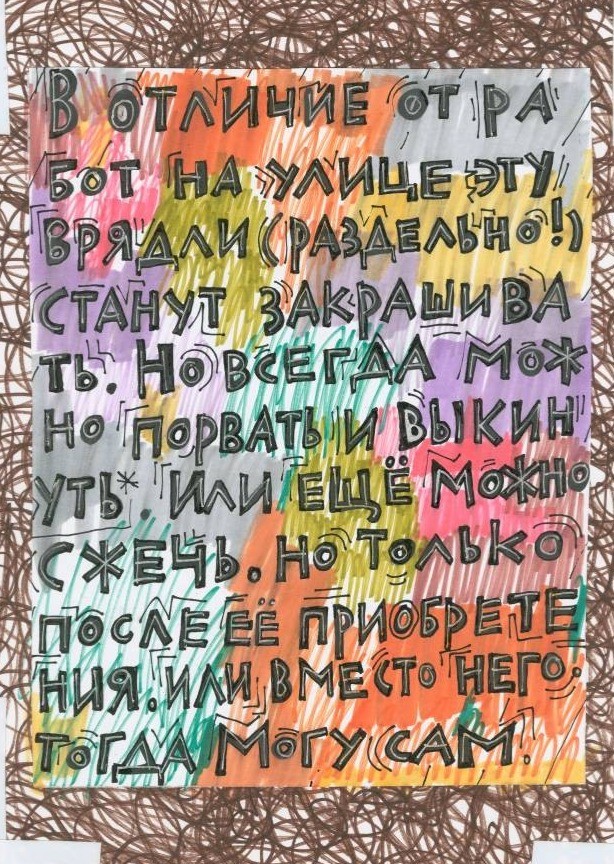 В ОТЛИЧИЕ ОТ РА
БОТ НА УЛИЦЕ ЭТУ
ВРЯДЛИ (РАЗДЕЛЬНО!)
СТАНУТ ЗАКРАШИВА
ТЬ. НО ВСЕГДА МОЖ
НО ПОРВАТЬ И ВЫКИН
УТЬ*. ИЛИ ЕЩЁ МОЖНО
СЖЕЧЬ. НО ТОЛЬКО
ПОСЛЕ ЕЁ ПРИОБРЕТЕ
НИЯ. ИЛИ ВМЕСТО НЕГО.
ТОГДА МОГУ САМ.